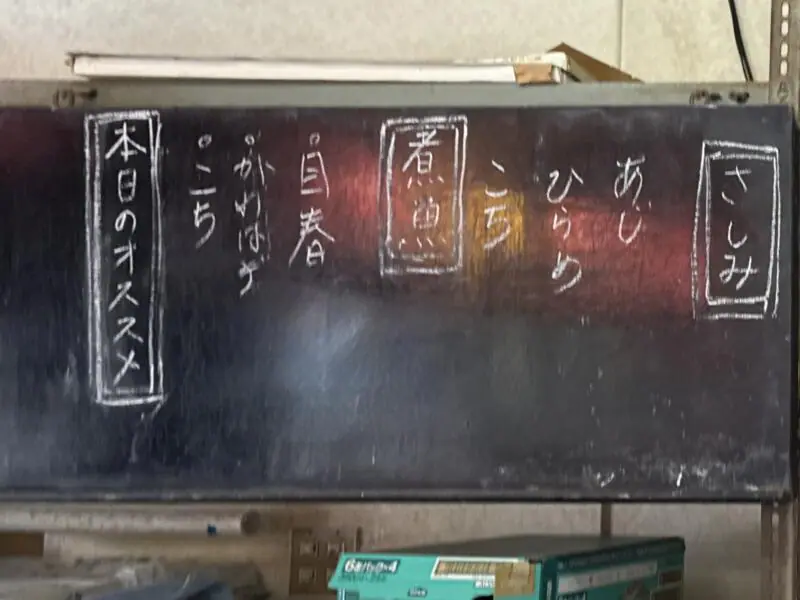 さしみ
あじ
ひらめ
こち
煮魚
・目春
・かわはぎ
・こち
本日のオススメ